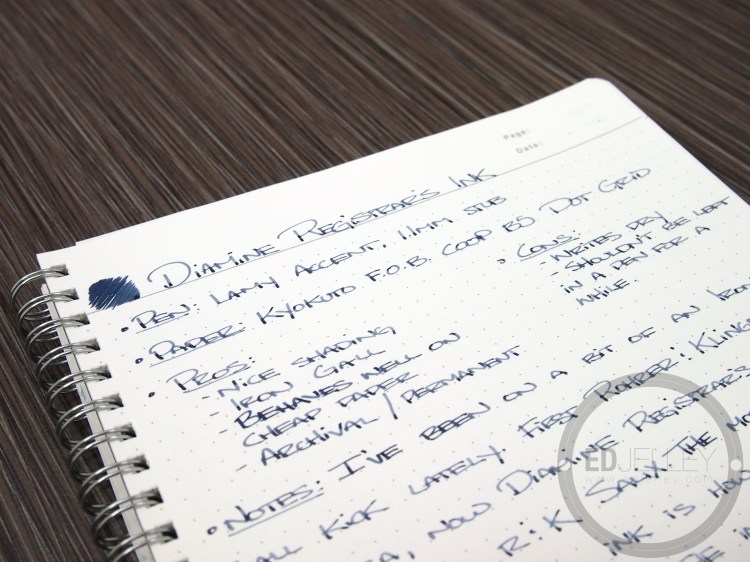 Page:
Date:
Diamine Registrar's Ink
• Pen: Lamy Accent, 1.1mm stub
• Paper: Kyokuto F.O.B. Coop B5 Dot Grid
• Pros:
- Nice shading
- Iron gall
- Behaves well on
cheap paper
- Archival / Permanent
• Cons:
- Writes dry
- Shouldn't be left
in a pen for a
while.
• Notes: I've been on a bit of an iron
gall kick lately. First Rohrer & Klingner
, now Diamine Registrar's
R & K Salix the
ink is
EDJELLEY
www.edjelley.com